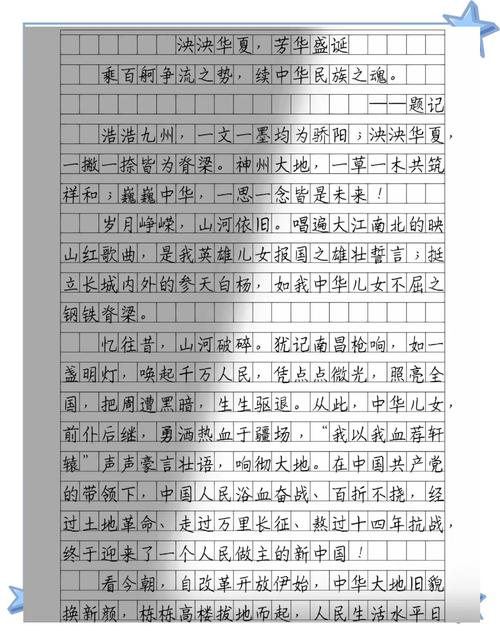 泱泱华夏，芳华盛诞
乘百舸争流之势，续中华民族之魂。
——题记
浩浩九州，一文一墨均为骄阳；泱泱华夏，
一撇一捺皆为脊梁。神州大地，一草一木共筑
祥和；巍巍中华，一思一念皆是未来！
岁月峥嵘，山河依旧。唱遍大江南北的映
山红歌曲，是我英雄儿女报国之雄壮誓言；挺
立长城内外的参天白杨，如我中华儿女不屈之
钢铁脊梁。
忆往昔，山河破碎。犹记南昌枪响，如一
盏明灯，唤起千万人民，凭点点微光，照亮全
国，把周遭黑暗，生生驱退。从此，中华儿女，
前仆后继，勇洒热血于疆场，“我以我血荐轩
辕”声声豪言壮语，响彻大地。在中国共产党
的带领下，中国人民浴血奋战、百折不挠，经
过土地革命、走过万里长征、熬过十四年抗战，
终于迎来了一个人民做主的新中国！
看今朝，自改革开放伊始，中华大地旧貌
换新颜，栋栋高楼拔地而起，人民生活水平日